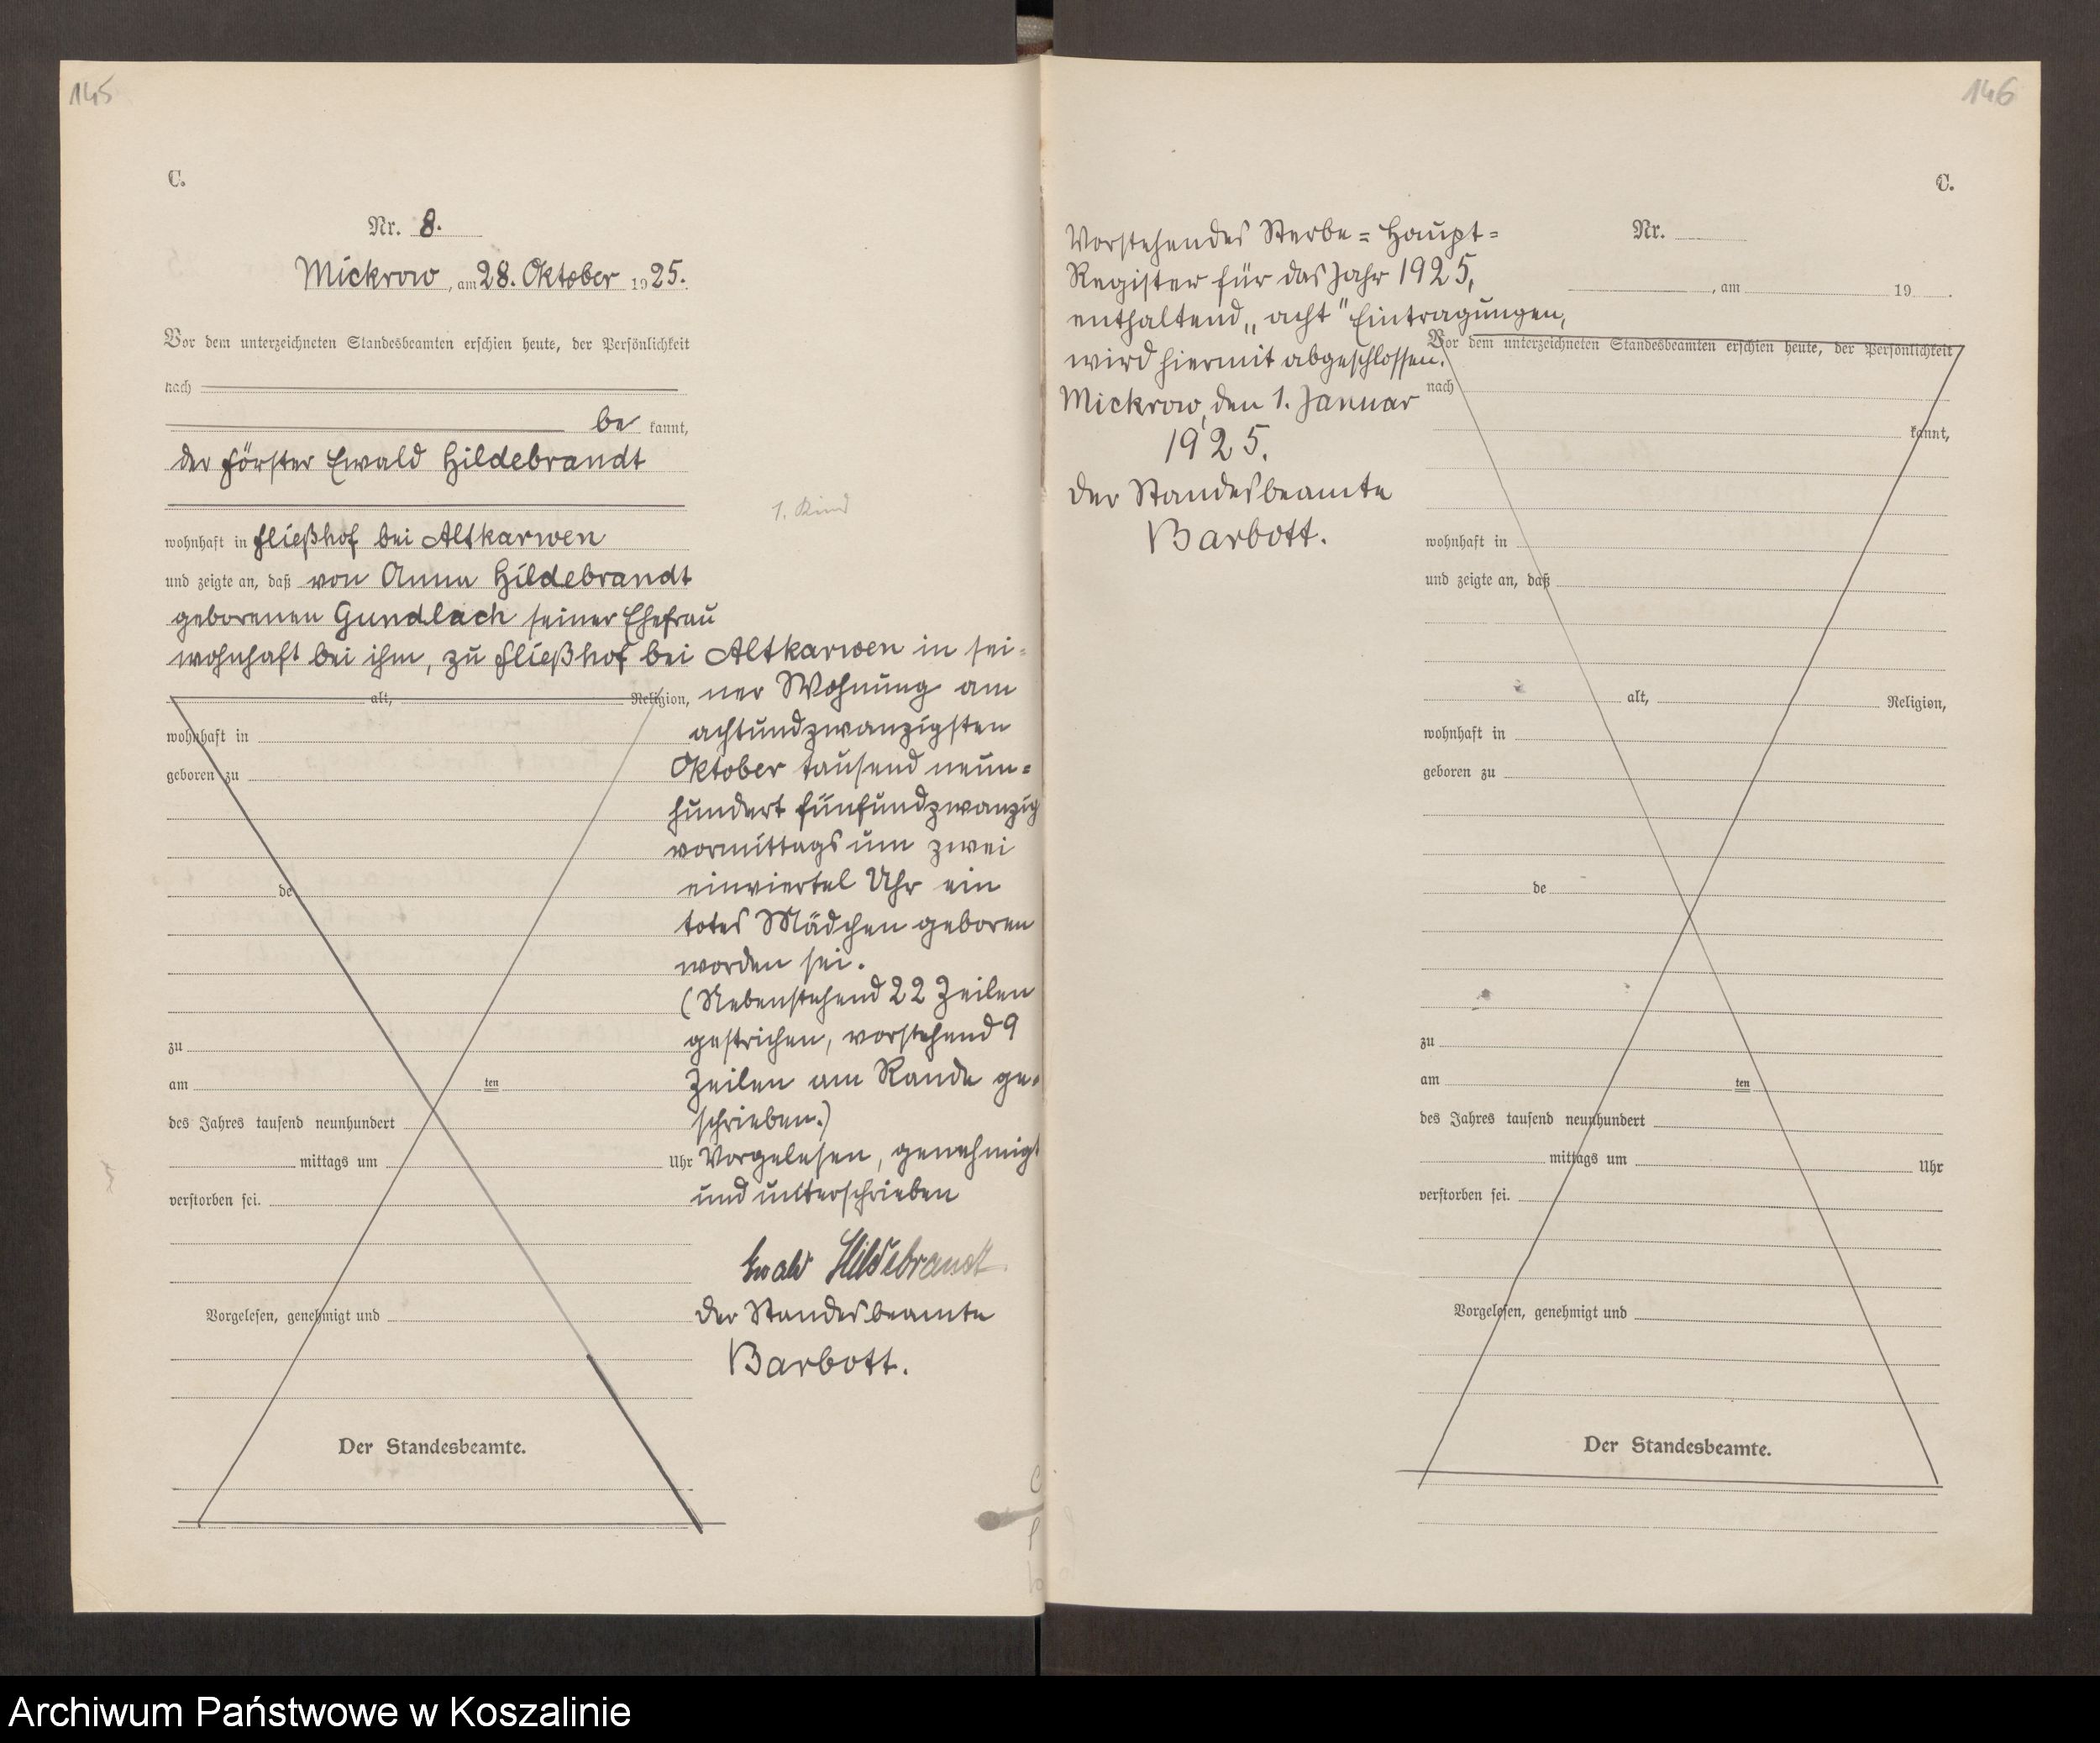 145
C.
Nr. 8.
Mickrow, am 28. Oktober 1925.
Vor dem unterzeichneten Standesbeamten erschien heute, der Persönlichkeit
nach
be kannt,
der Förster Ewald Hildebrandt
1. Kind
wohnhaft in Fließhof bei Altkarwen
und zeigte an, daß von Anna Hildebrandt
geborenen Gundlach seiner Ehefrau
wohnhaft bei ihm, zu Fließhof bei Altkarwen in sei=
alt, Religion,
ner Wohnung am
wohnhaft in
achtundzwanzigsten
geboren zu
Oktober tausend neun=
hundert fünfundzwanzig
vormittags um zwei
de
einviertel Uhr ein
totes Mädchen geboren
worden sei.
(Nebenstehend 22 Zeilen
gestrichen, vorstehend 9
zu
Zeilen am Rande ge=
am ten
schrieben.)
des Jahres tausend neunhundert
mittags um Uhr
Vorgelesen, genehmigt
verstorben sei.
und unterschrieben
Ewald Hildebrandt
Vorgelesen, genehmigt und
Der Standesbeamte
Barbott.
Der Standesbeamte.
146
C.
Vorstehendes Sterbe=Haupt=
Register für das Jahr 1925,
enthaltend „acht" Eintragungen,
wird hiermit abgeschlossen.
Mickrow, den 1. Januar
1925.
Der Standesbeamte
Barbott.
Nr.
, am 19 .
Vor dem unterzeichneten Standesbeamten erschien heute, der Persönlichkeit
nach
kannt,
wohnhaft in
und zeigte an, daß
alt, Religion,
wohnhaft in
geboren zu
de
zu
am ten
des Jahres tausend neunhundert
mittags um Uhr
verstorben sei.
Vorgelesen, genehmigt und
Der Standesbeamte.
Archiwum Państwowe w Koszalinie